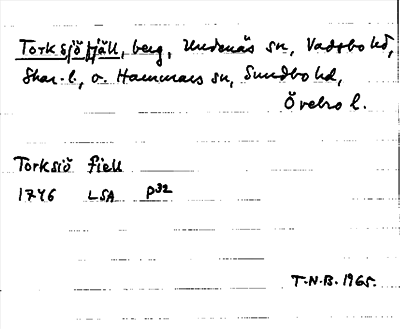 Torksjöfjäll, berg, Undenäs sn, Vadsbo hd,
Skar. l., o. Hammars sn, Sundbo hd,
Örebro l.
Torksiö fiell
1746 LSA P32
T.N.B. 1965.